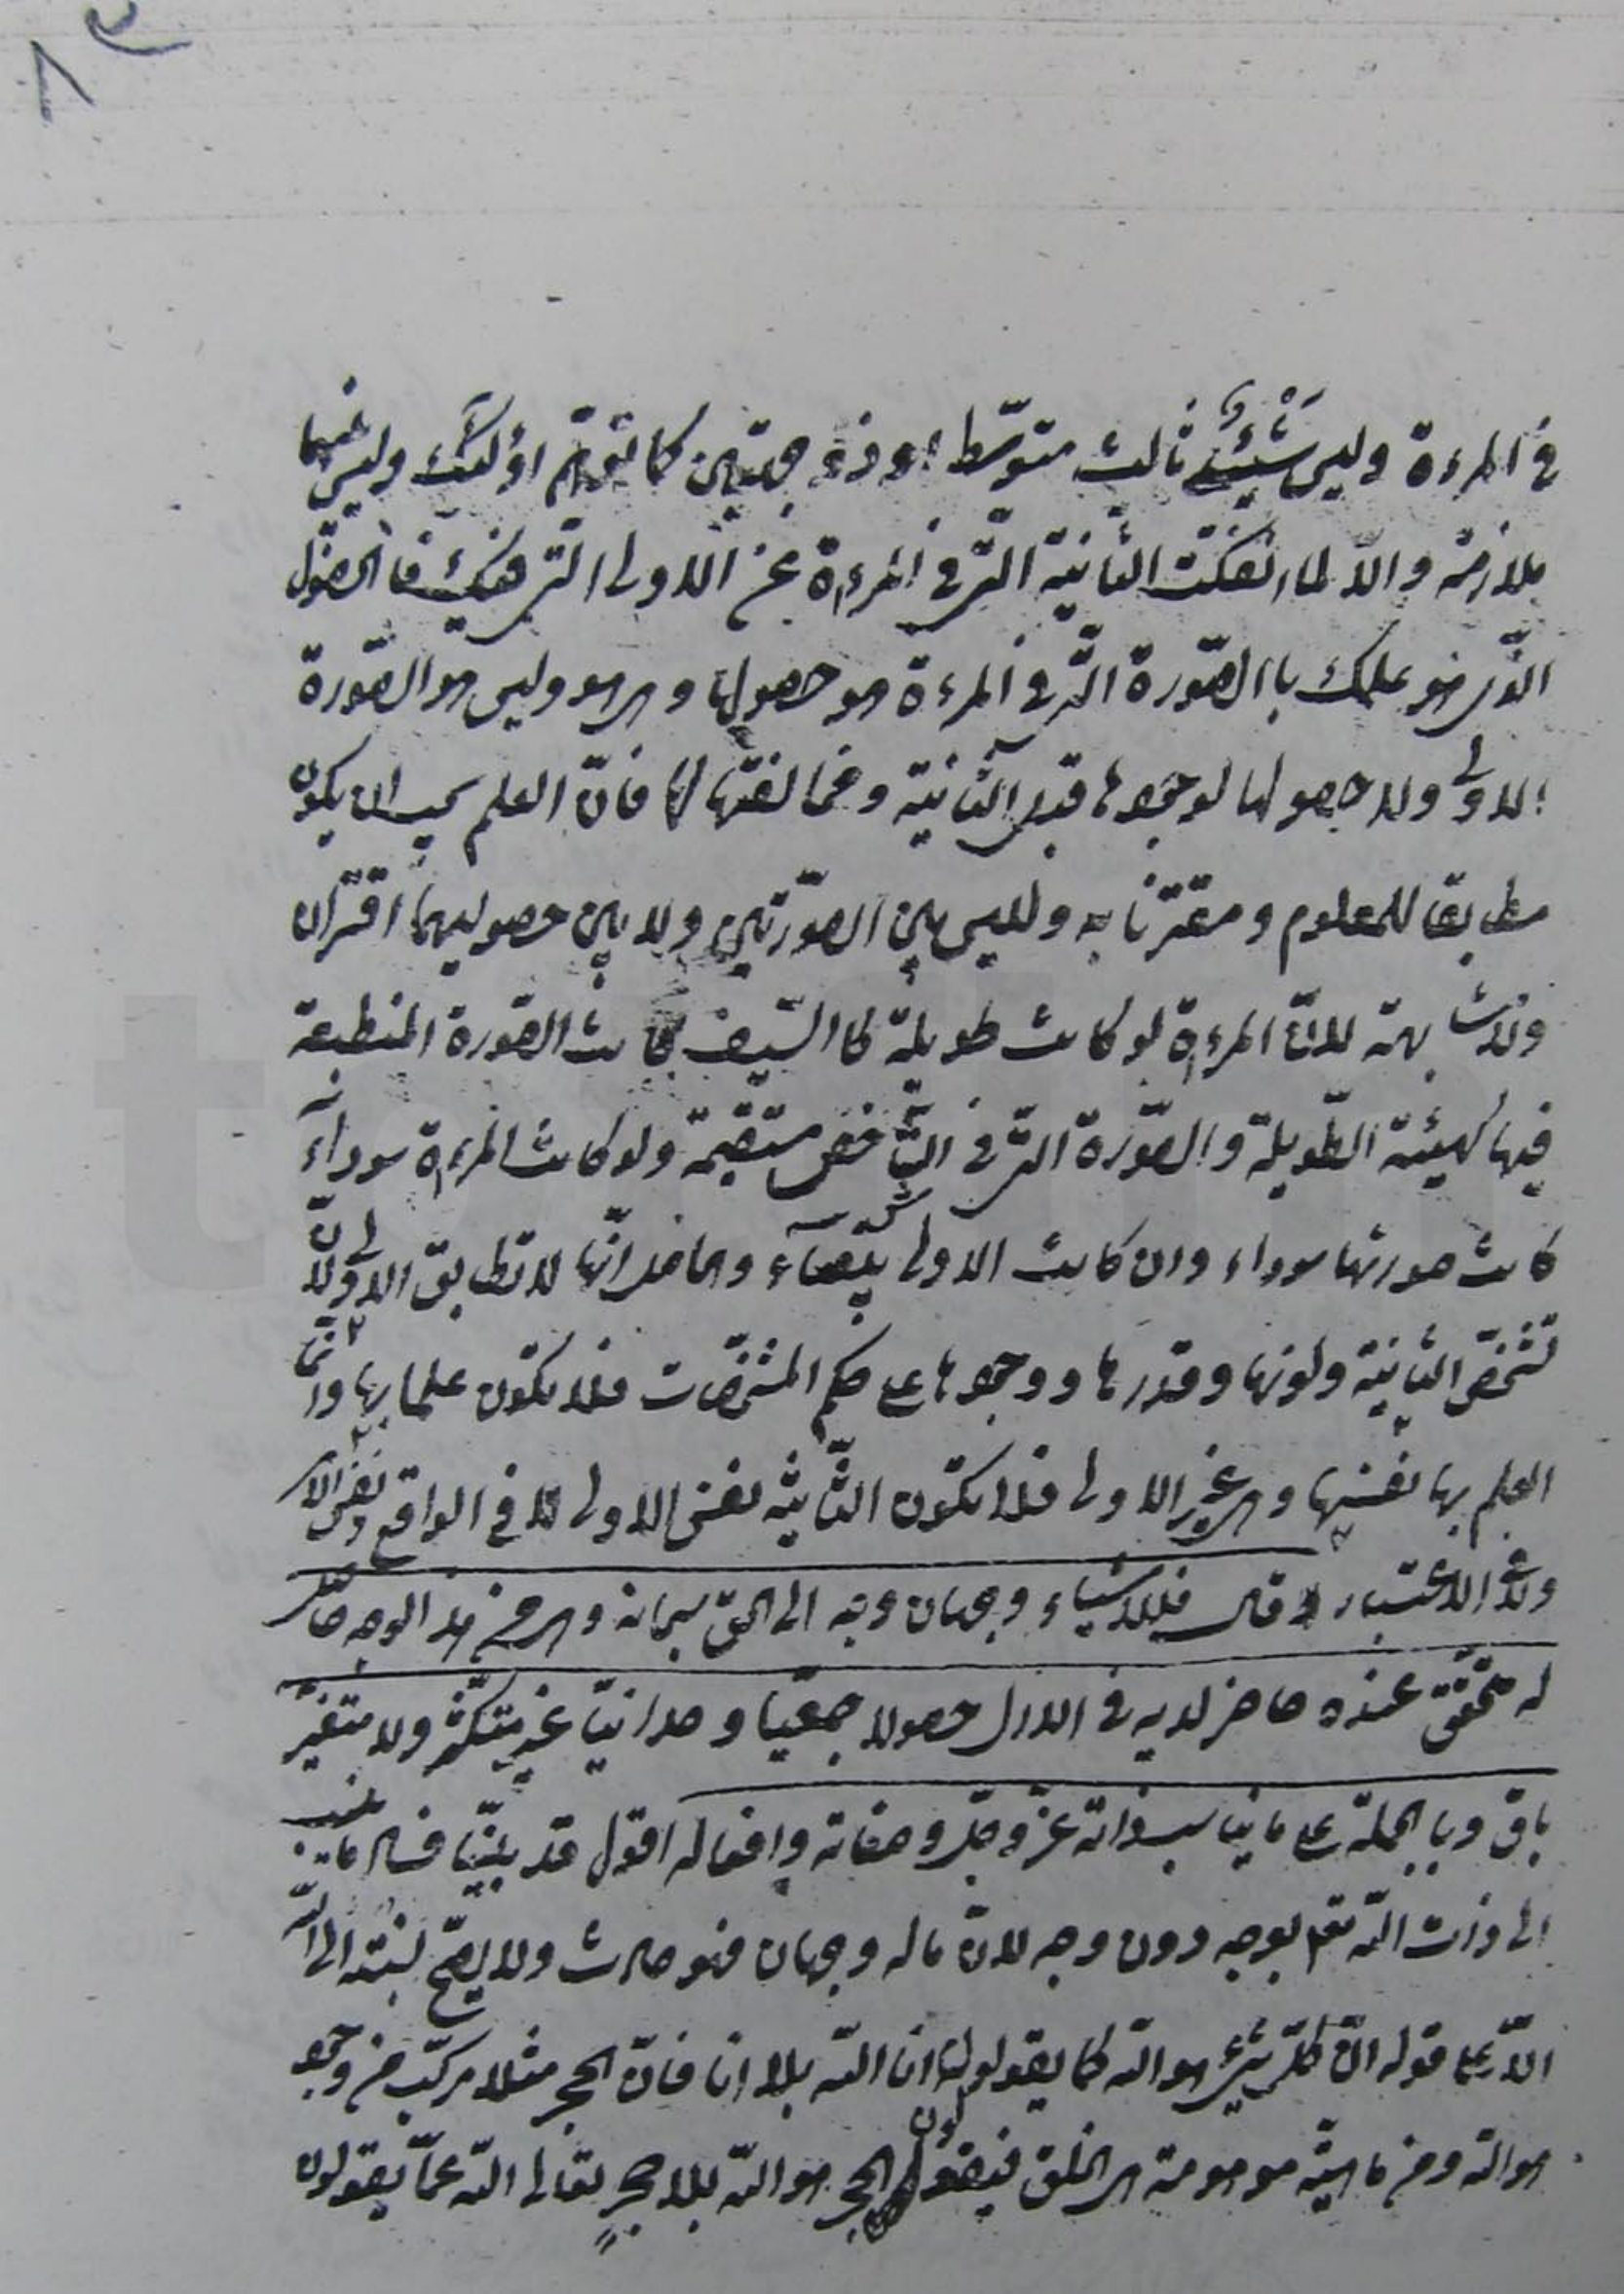 في المرءة وليس شيئ ثالث متوسّط او ذو جهتين كما توهّم اولئك وليس بينهما
ملازمة والّا لما انفكت الثانية التي في المرءاة عن الاولى التي فيك فالحصول
الذي هو علمك باالصّورة التي في المرءة هو حصولها وهي هو وليس هو الصّورة
الاولى ولا حصولها لوجودها قبل الثّانية ومخالفتها لها فانّ العلم يجب ان يكون
مطابقا للمعلوم ومقترنا به وليس بين الصّورتين ولا بين حصوليهما اقتران
ولا مشابهة لانّ المرءاة لو كانت طويلة كالسّيف كانت الصّورة المنطبعة
فيها كهيئة الطّويلة والصّورة التي في الشّاخص مستقيمة ولو كانت المرءاة سوداء
كانت صورتها سوداء وان كانت الاولى بيضاء والحاصل انّها لا تطابق الاولى لانّ
تشخّص الثانية ولونها وقدرها ووجودها على حكم المشخّصات فلا تكون علما بها وانّما
العلم بها نفسها وهي غير الاولى فلا تكون الثّانية نفس الاولى لا في الواقع ونفس الامر
ولا في الاعتبار قال فللاشياء وجهان وجه الى الحق سبحانه وهي من هذا الوجه حاصلة
له متحقّق عنده حاضر لديه في الازل حصولا جمعيّا وحدانيّا غير متكثّر ولا متغيّر
باق وبالجملة على ما يناسب ذاته عزّ وجلّ وصفاته وافعاله اقول قد بيّنّا فساد ما ينسب
الى ذات اللّه تعم بوجه دون وجه لانّ ما له وجهان فهو حادث ولا يصحّ نسبته الى اللّه
الّا على قوله انّ كلّ شيئ هو اللّه كما يقولون انا اللّه بلا انا فانّ الحجر مثلا مركّب من وجود
هو اللّه ومن ماهيّة موهومة هي الخلق فيقولون الحجر هو اللّه بلا حجر تعالى اللّه عمّا يقولون